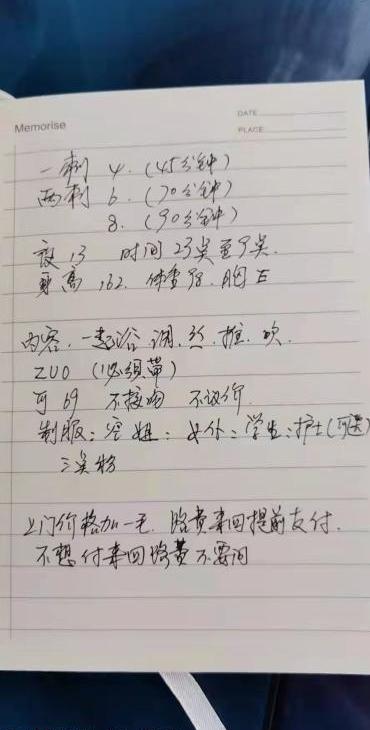 Memorise
DATE
PLACE
一刺 4.(45分钟)
两刺 6.(70分钟)
8.(90分钟)
夜13 时间23点至9点.
身高162. 体重98. 胸E
内容.一起浴.调.丝.推.吹.
ZUO(必须带)
可69 不接吻 不议价.
制服:空姐:女仆:学生:护士(可选)
三点粉
上门价格加一毛.路费来回提前支付.
不想付来回路费不要问